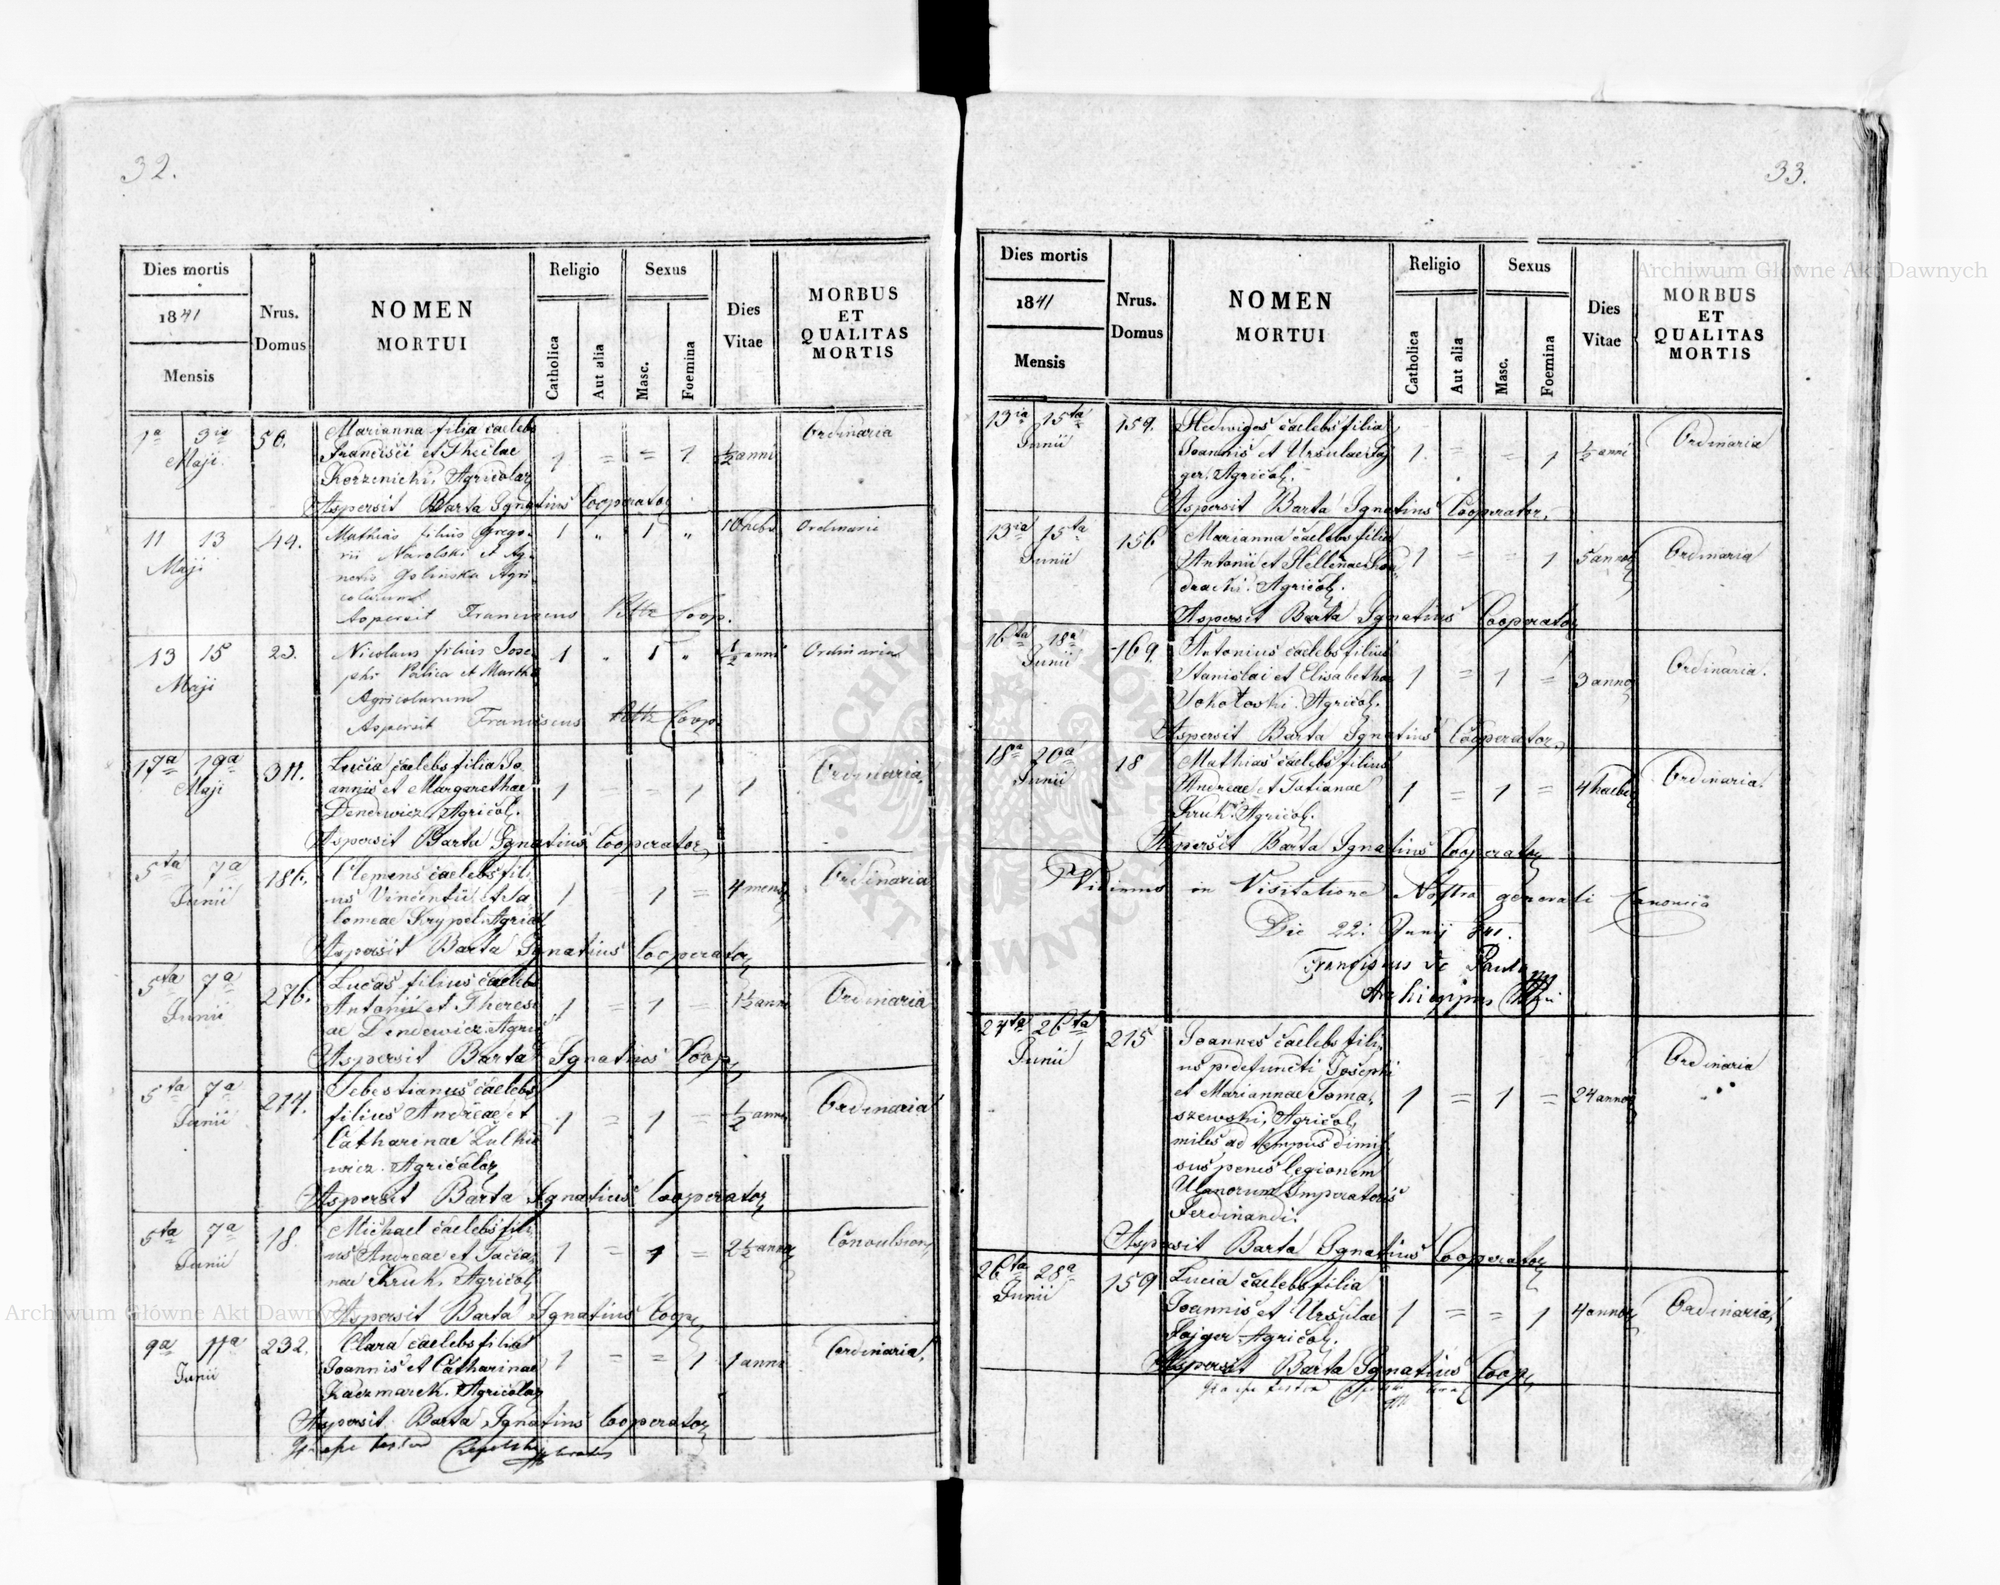 32.
Dies mortis
1841
Mensis
Nrus.
Domus
NOMEN
MORTUI
Religio
Catholica
Aut alia
Sexus
Masc.
Foemina
Dies
Vitae
MORBUS
ET
QUALITAS
MORTIS
1a 3ia Maji 56. Marianna filia caelebs 1 = = 1 ½ anni Ordinaria
Francisci et Theclae
Korzenicki, Agricolar
Aspersit Barta Ignatius Cooperator
11 13 Maji 44. Mathias filius Grego- 1 " 1 " 10 hebd Ordinaria
rii Narolski et Ag-
netis Golinska Agri-
colarum
Aspersit Franciscus Coop.
13 15 Maji 23. Nicolaus filius Jose- 1 " 1 " ½ anni Ordinaria
phi Palica et Martha
Agricolarum
Aspersit Franciscus Coop.
17a 19a Maji 311. Lucia caelebs filia Jo 1 = = 1 1 Ordinaria.
annis et Margarethae
Denewicz, Agricol.
Aspersit Barta Ignatius Cooperator
5ta 7a Junii 186. Clemens caelebs fili 1 = 1 = 4 mens Ordinaria
us Vincentii et Sa
lomeae Krypel. Agricol
Aspersit Barta Ignatius Cooperator
5ta 7a Junii 276. Lucas filius caelebs 1 = 1 = 1½ anni Ordinaria
Antonii et Theresi
ae Denewicz Agric
Aspersit Barta Ignatius Coop.
5ta 7a Junii 274. Sebestianus caelebs 1 = 1 = ½ anni Ordinaria
filius Andreae et
Catharinae Zulkie
wicz. Agricolar
Aspersit Barta Ignatius Cooperator
5ta 7a Junii 18. Michael caelebs fili 1 = 1 = 2½ annor Convulsion,
us Andreae et Tacia
nae Kruk, Agricol
Aspersit Barta Ignatius Coop,
9a 11a Junii 232. Clara caelebs filia 1 = = 1 1 anno Ordinaria.
Joannis et Catharinae
Kaczmarek. Agricolar
Aspersit Barta Ignatius Cooperator
33.
Dies mortis
1841
Mensis
Nrus.
Domus
NOMEN
MORTUI
Religio
Catholica
Aut alia
Sexus
Masc.
Foemina
Dies
Vitae
MORBUS
ET
QUALITAS
MORTIS
13ia 15ta Junii 159. Hedwiges caelebs filia 1 = = 1 ½ anni Ordinaria
Joannis et Ursulae Faj
ger, Agricol.
Aspersit Barta Ignatius Cooperator.
13ia 15ta Junii 156 Marianna caelebs filia 1 = = 1 5 annor Ordinaria
Antonii et Hellenae Kon
dracki. Agricol.
Aspersit Barta Ignatius Cooperator
16ta 18a Junii 169. Antonius caelebs filius 1 = 1 = 3 annor Ordinaria.
Stanislai et Elisabethae
Sokolowski. Agricol.
Aspersit Barta Ignatius Cooperator.
18a 20a Junii 18 Mathias caelebs filius 1 = 1 = 4 haebd Ordinaria.
Andreae et Tatianae
Kruk. Agricol.
Aspersit Barta Ignatius Cooperator
Vidimus in Visitatione Nostra generali Canonica
Die 22: Junij 841.
Franciscus de Paula
24ta 26ta Junii 215 Joannes caelebs fili 1 = 1 = 24 annor Ordinaria
us p. defuncti Josephi
et Mariannae Toma
szewski, Agricol,
miles ad tempus dimis
sus penes legionem
Ulanorum Imperatoris
Ferdinandi.
Aspersit Barta Ignatius Cooperator
26ta 28a Junii 159 Lucia caelebs filia 1 = = 1 4 annor Ordinaria,
Joannis et Ursulae
Fajger Agricol.
Aspersit Barta Ignatius Coop,
Archiwum Główne Akt Dawnych
Archiwum Główne Akt Dawnych